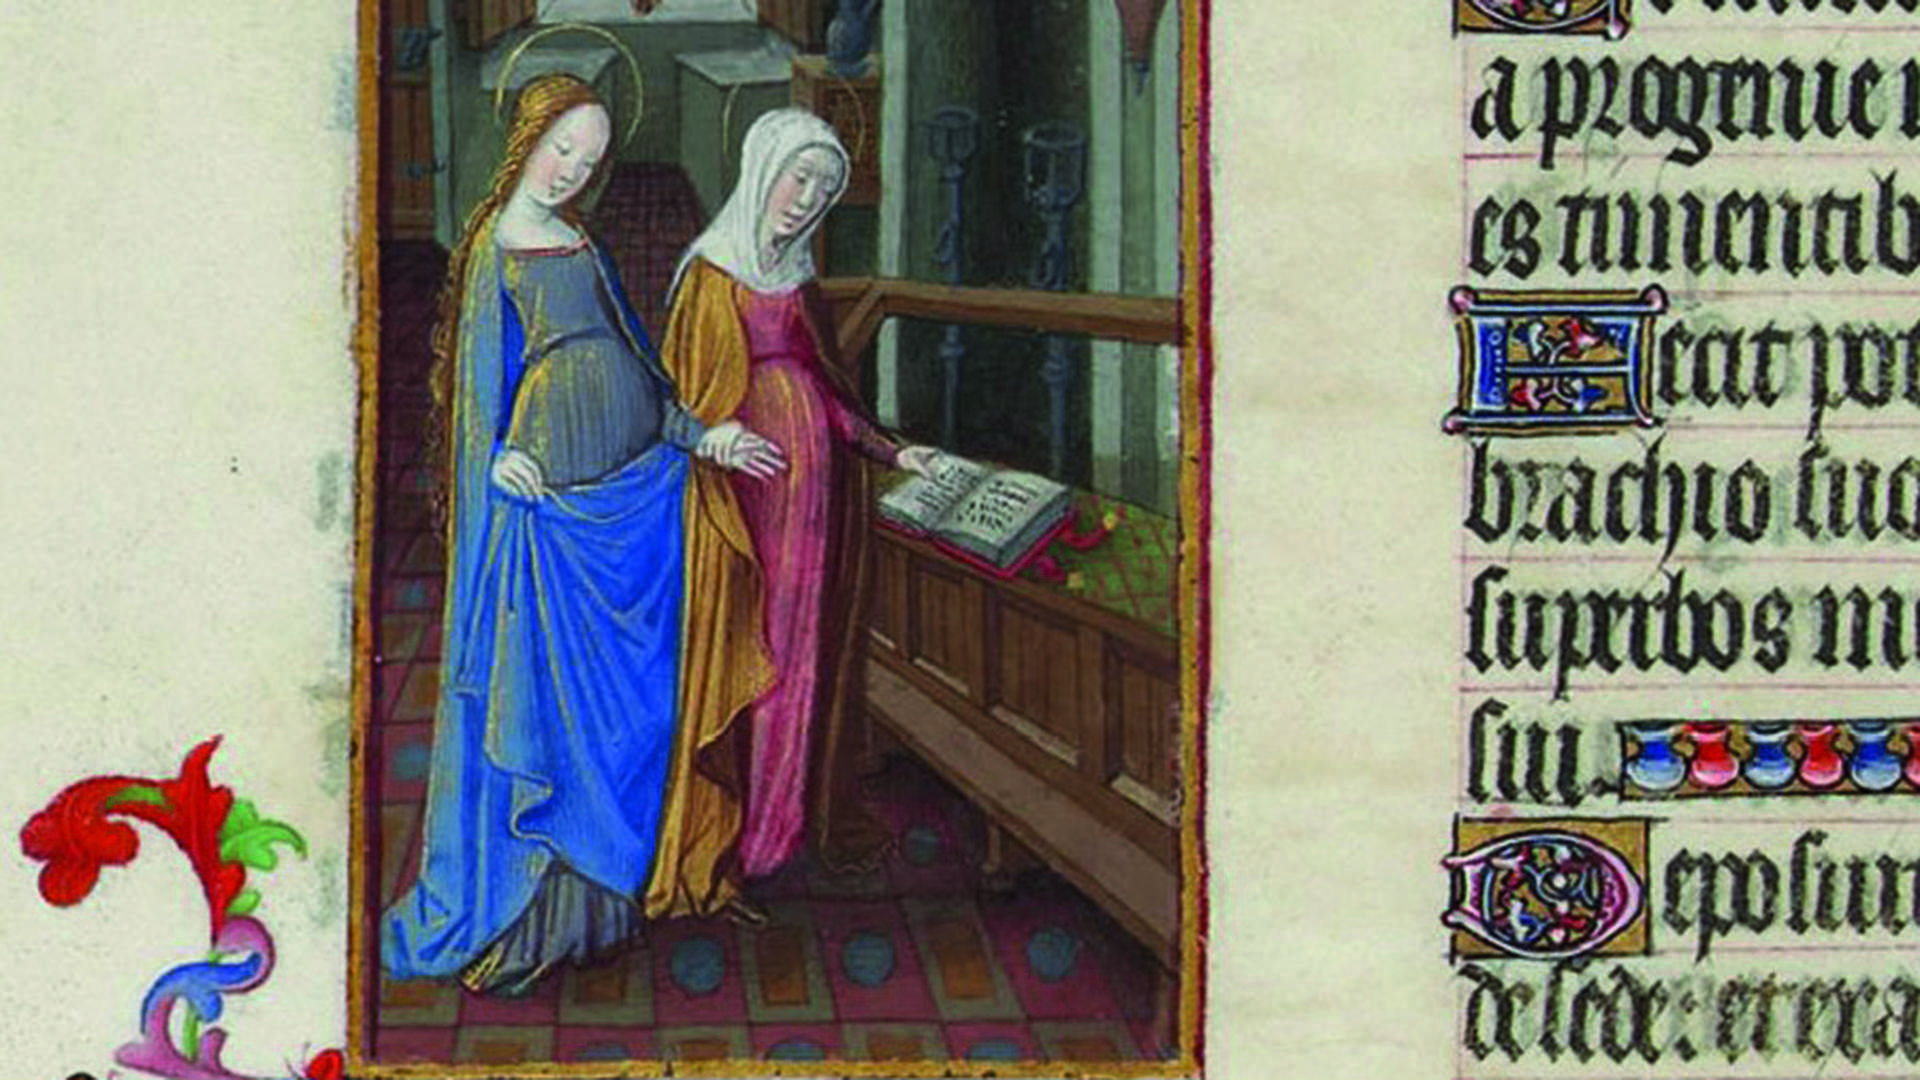 a progenie
es timentib
Fecit pot
brachio suo
superbos me
sui.
Deposui
de sede: et exa